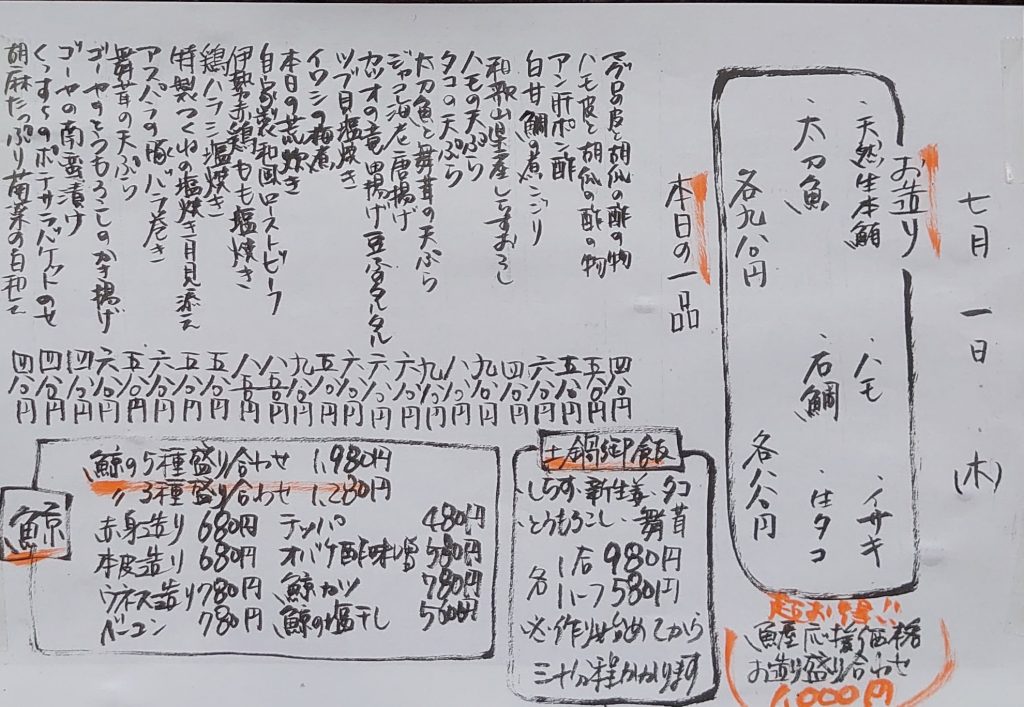 七月一日(木)
お造り
・天然生本鮪 ・ハモ ・イサキ
・太刀魚 ・石鯛 ・生タコ
各九八〇円 各八八〇円
本日の一品
マグロの皮と胡瓜の酢の物 四八〇円
ハモ皮と胡瓜の酢の物 五八〇円
アン肝ポン酢 五八〇円
白甘鯛の煮こごり 六八〇円
和歌山県産しらすおろし 四八〇円
ハモの天ぷら 九八〇円
タコの天ぷら 八八〇円
太刀魚と舞茸の天ぷら 九八〇円
ジャコ海老唐揚げ 六八〇円
カツオの竜田揚げ豆腐タルタル 六八〇円
ツブ貝塩焼き 六八〇円
イワシの梅煮 五八〇円
本日の荒炊き
自家製和風ローストビーフ 九八〇円
伊勢赤鶏もも塩焼き 八五〇円
鶏ハラミ塩焼き
特製つくねの塩焼き月見添え 五八〇円
アスパラの豚バラ巻き 六八〇円
舞茸の天ぷら 五八〇円
ゴーヤととうもろこしのかき揚げ 六八〇円
ゴーヤの南蛮漬け 四八〇円
のポテサラバケットのせ 四八〇円
胡麻たっぷり菊菜の白和え 四八〇円
超お得!!
魚屋応援価格
お造り盛り合わせ
1,000円
土鍋御飯
しらす・新生姜・タコ
とうもろこし・舞茸
各 1合980円
ハーフ580円
※作り始めてから
三十分程かかります
鯨
鯨の5種盛り合わせ 1,980円
〃3種盛り合わせ 1,280円
赤身造り 680円 テッパ 480円
本皮造り 680円 オバケ酢味噌 580円
ウネス造り 780円 鯨カツ 780円
ベーコン 780円 鯨の塩干し 500円